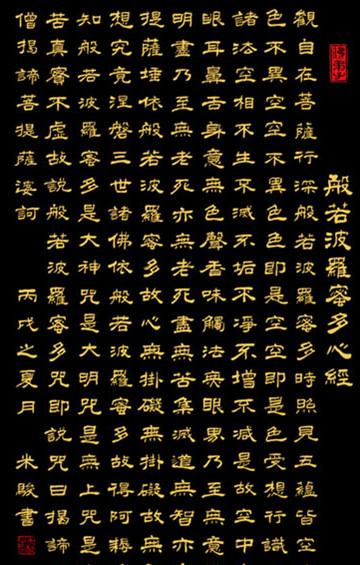 般若波羅蜜多心經
觀自在菩薩行深般若波羅蜜多時照見五蘊皆空
色不異空空不異色色即是空空即是色受想行識
諸法空相不生不滅不垢不淨不增不減是故空中
眼耳鼻舌身意無色聲香味觸法無眼界乃至無意
明盡乃至無老死亦無老死盡無苦集滅道無智亦
提薩埵依般若波羅蜜多故心無掛礙無掛礙故無
想究竟涅槃三世諸佛依般若波羅蜜多故得阿耨
知般若波羅蜜多是大神咒是大明咒是無上咒是
苦真實不虛故說般若波羅蜜多咒即說咒曰揭諦
僧揭諦菩提薩婆訶 丙戌之夏月 米駿書